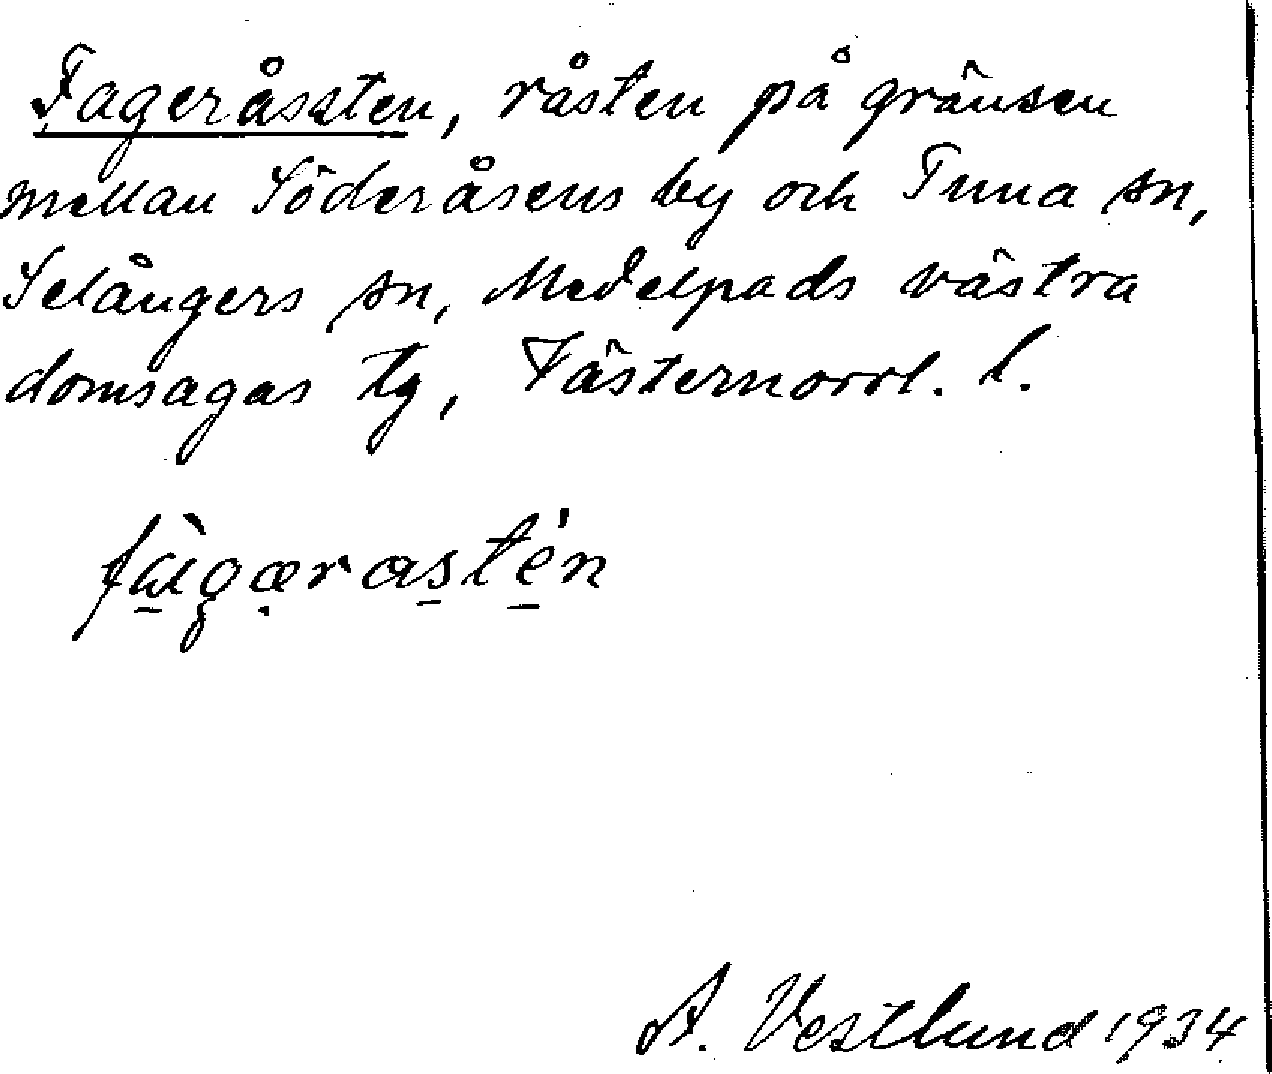 Fageråssten, råsten på gränsen
mellan Söderåsens by och Tuna sn,
Selångers sn, Medelpads västra
domsagas tg, Västernorrl. l.
fàgærastén
A. Vestlund 1934